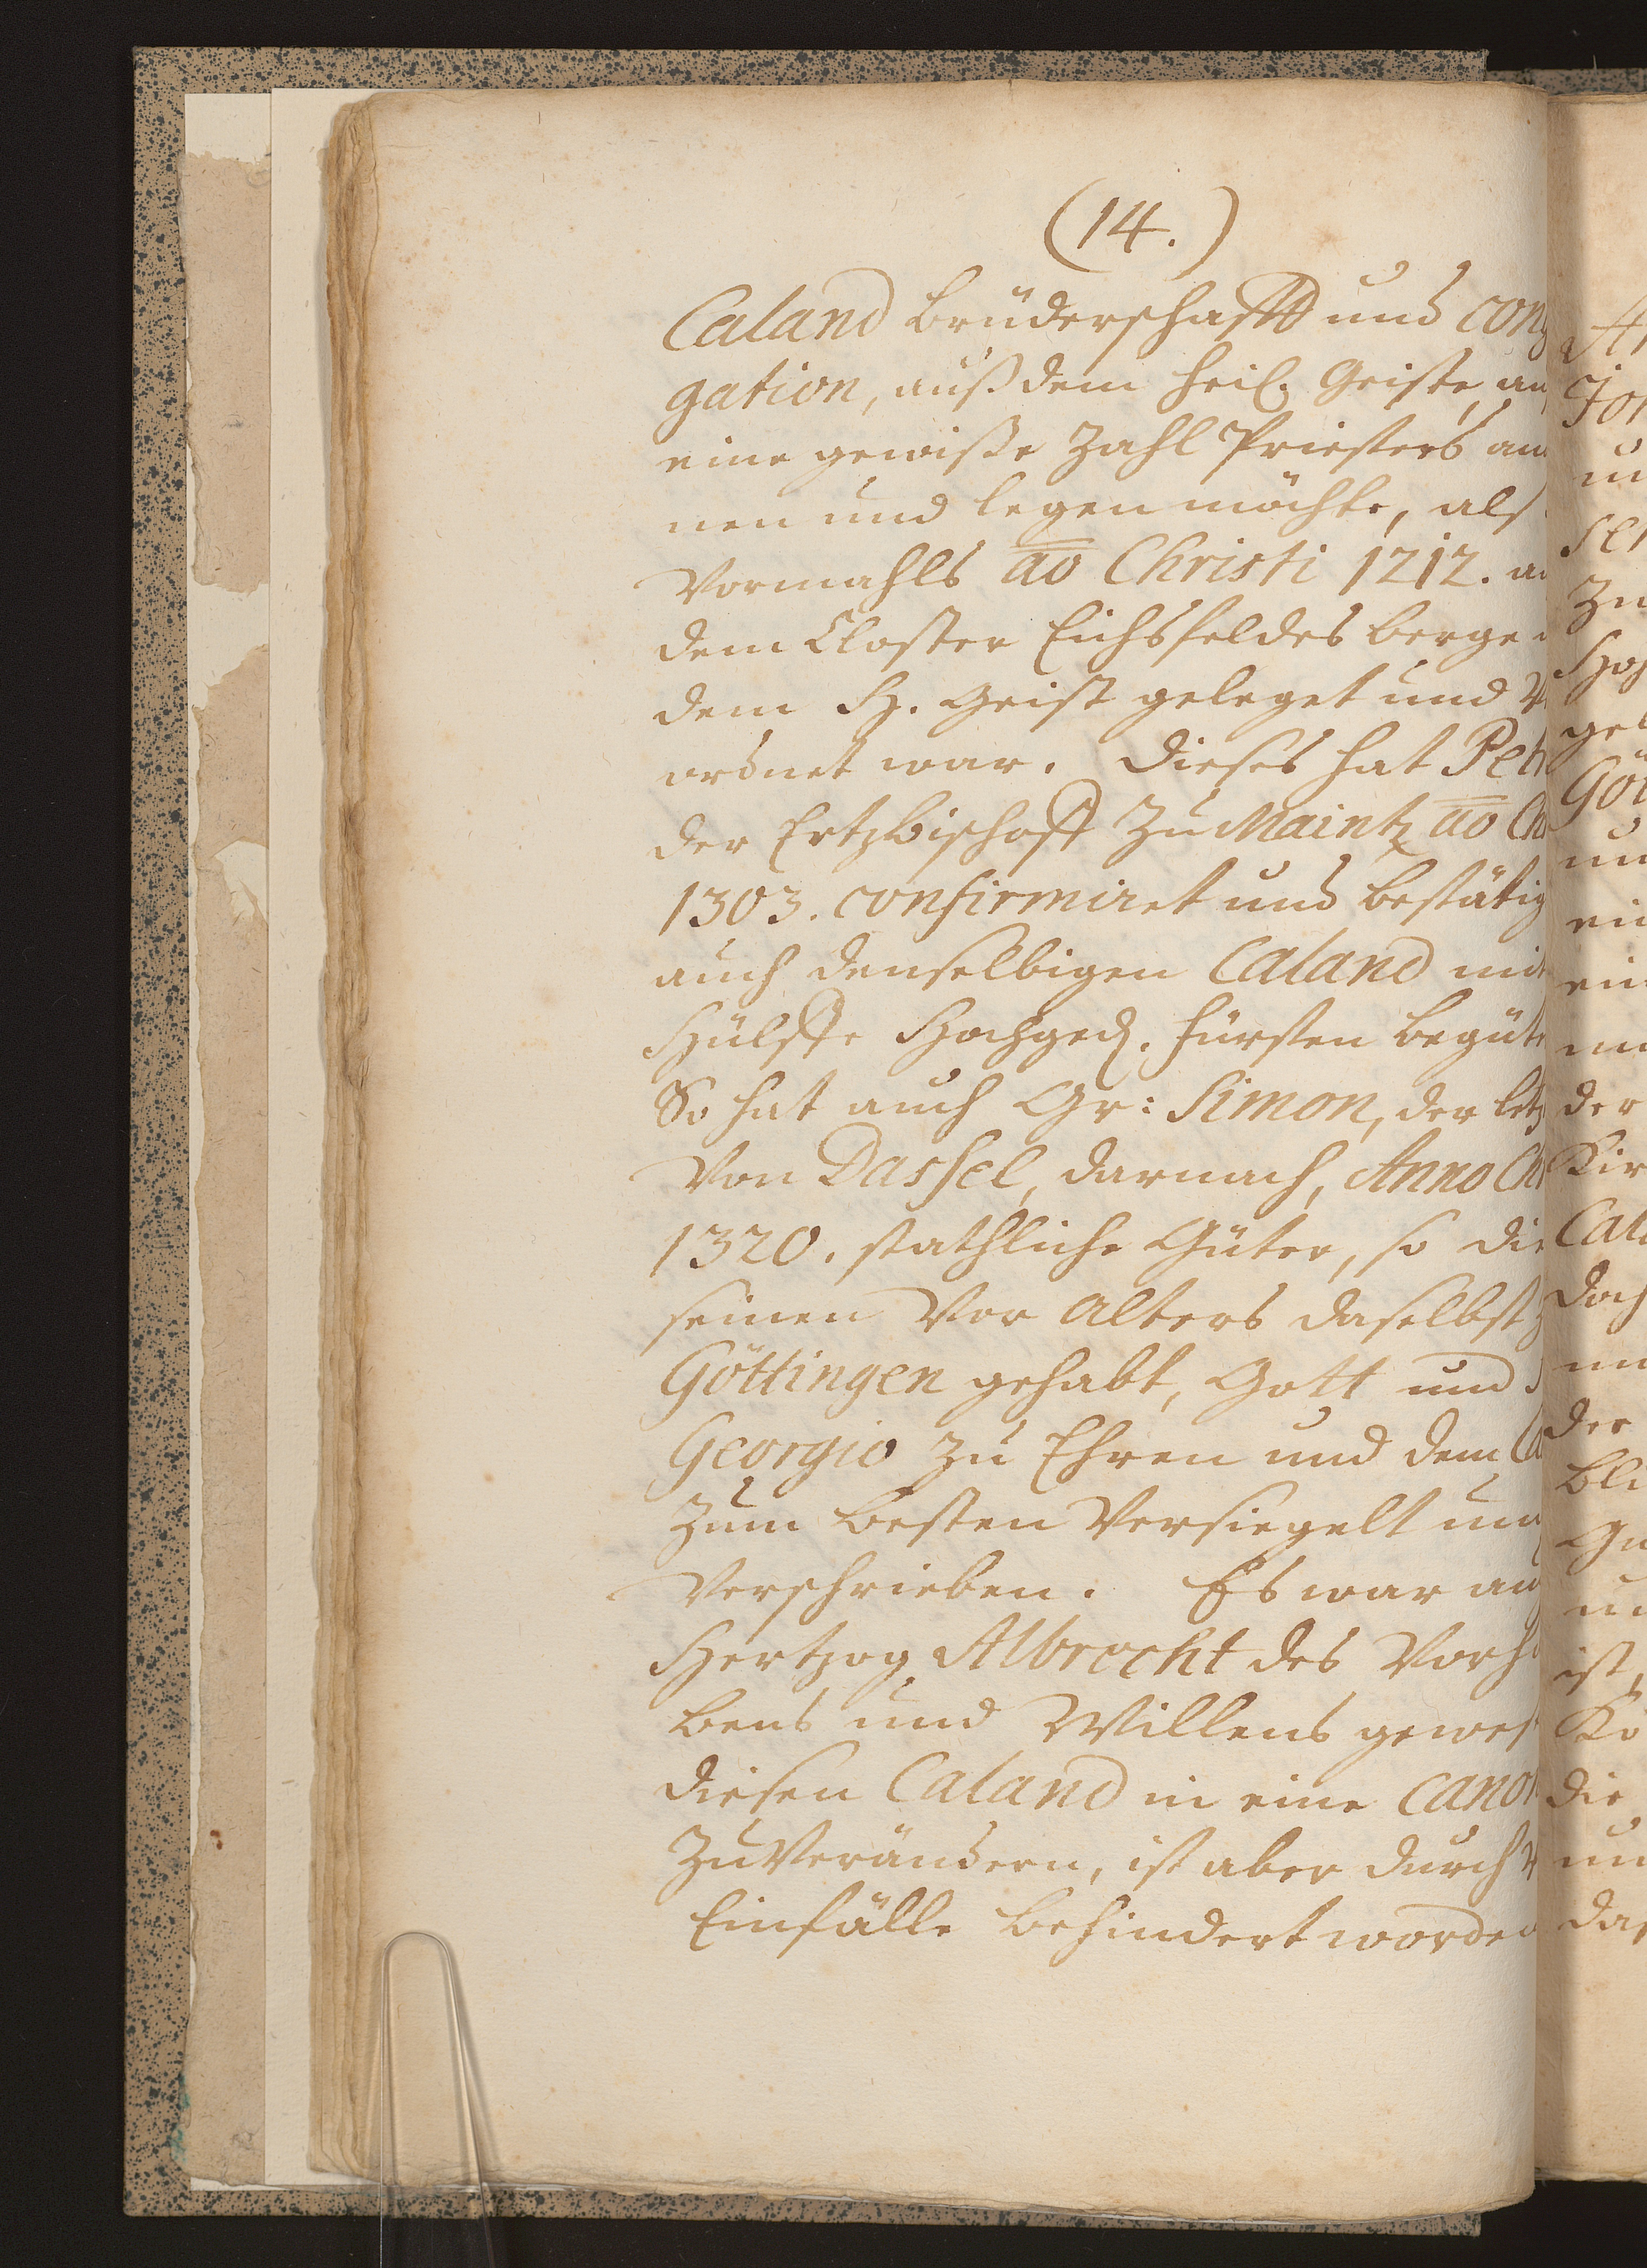 (14.)
Caland Brüderschafft und con
gation, auß dem heil. Geiste, an
eine gewiße Zahl Priesters an
nen und legen möchte, als
Vormahls ao Christi 1212. a
dem Closter Eichsfeldes berge
dem H. Geist geleget und V
ordnet war. Dieses hat Pet
der Ertzbischoff Zu Maintz ao Ch
1303. confirmiret und bestätig
auch denselbigen Caland mit
Hülffe Hochged. Fürsten begüt
So hat auch Gr: Simon, der letz
Von Dassel, darnach, Anno Ch
1320. stathliche Güter, so die
seinen Vor Alters daselbst z
Göttingen gehabt, Gott und
Georgio zu Ehren und dem Ca
zum Besten Versiegelt un
Verschrieben. Es war au
Hertzog Albrecht des Vorha
bens und Willens gewes
diesen Caland in eine Cano
Zu Verändern, ist aber durch V
Einfälle behindert worden